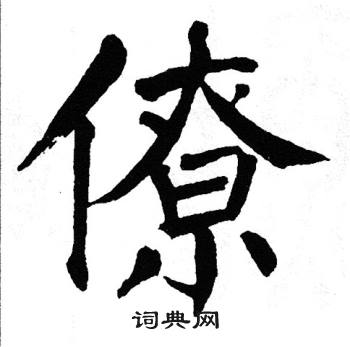 僚
词典网